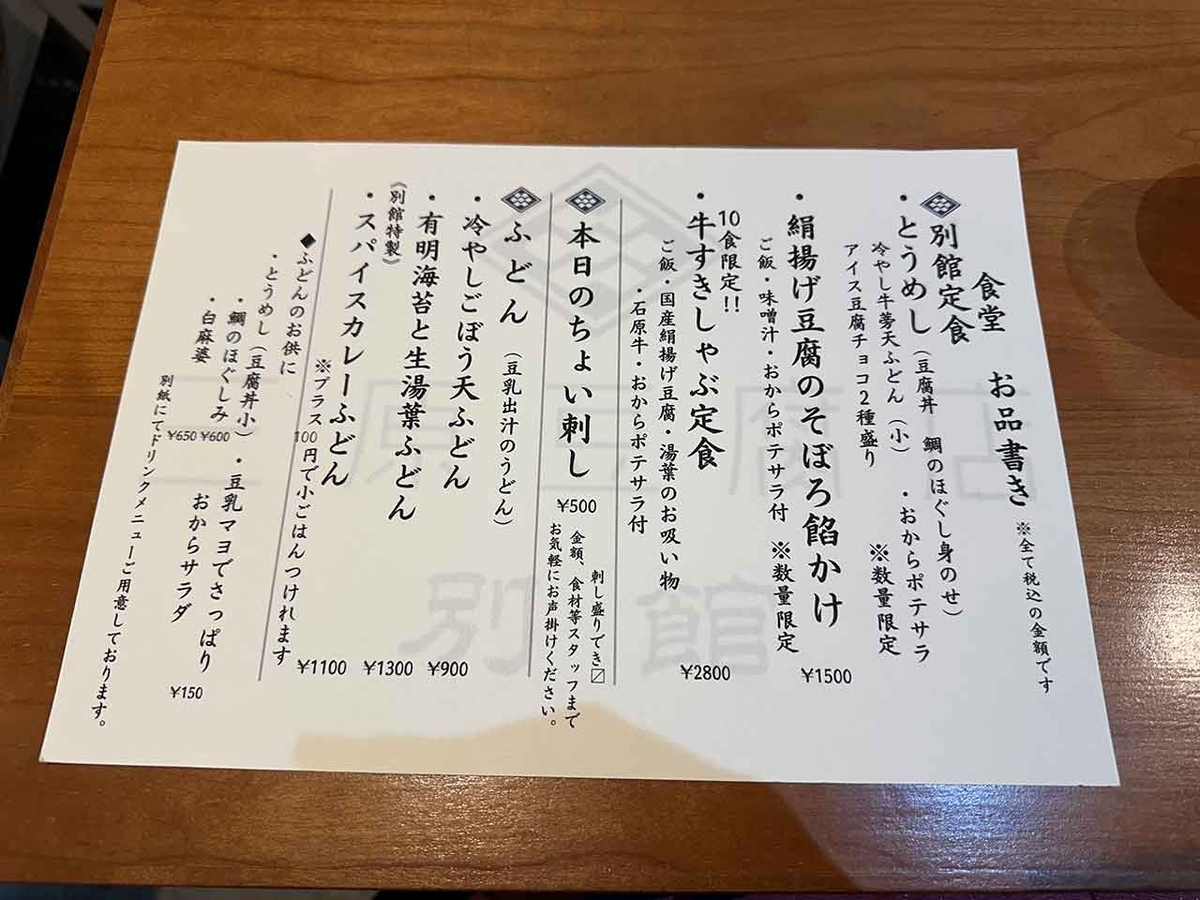 食堂 お品書き ※全て税込の金額です
別館定食
・とうめし（豆腐丼 鯛のほぐし身のせ）
冷やし牛蒡天ふどん（小） ・おからポテサラ
アイス豆腐チョコ2種盛り ※数量限定
・絹揚げ豆腐のそぼろ餡かけ ¥1500
ご飯・味噌汁・おからポテサラ付 ※数量限定
10食限定!!
・牛すきしゃぶ定食 ¥2800
ご飯・国産絹揚げ豆腐・湯葉のお吸い物
・石原牛・おからポテサラ付
本日のちょい刺し ¥500
刺し盛りでき〼
金額、食材等スタッフまで
お気軽にお声掛けください。
ふどん（豆乳出汁のうどん）
・冷やしごぼう天ふどん ¥900
・有明海苔と生湯葉ふどん ¥1300
《別館特製》
・スパイスカレーふどん ¥1100
※プラス100円で小ごはんつけれます
◆ふどんのお供に
・とうめし（豆腐丼小）
・鯛のほぐしみ ¥600
・白麻婆 ¥650
・豆乳マヨでさっぱり
おからサラダ ¥150
別紙にてドリンクメニューご用意しております。
三原豆腐店
別館